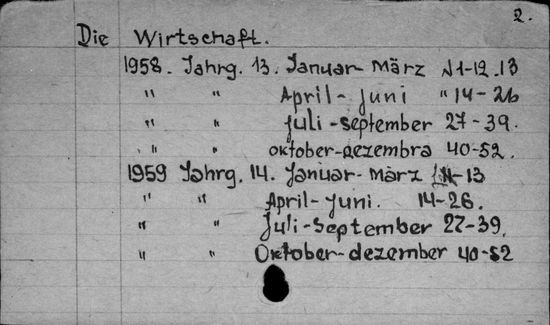 2.
Die Wirtschaft.
1958. Jahrg. 13. Januar-März N 1-12.13
" " April-Juni " 14-26
" " Juli-september 27-39.
" " oktober-dezembra 40-52.
1959 Jahrg. 14. Januar-März 1-13
" " April-Juni. 14-26.
" " Juli-September 27-39.
" " Oktober-dezember 40-52